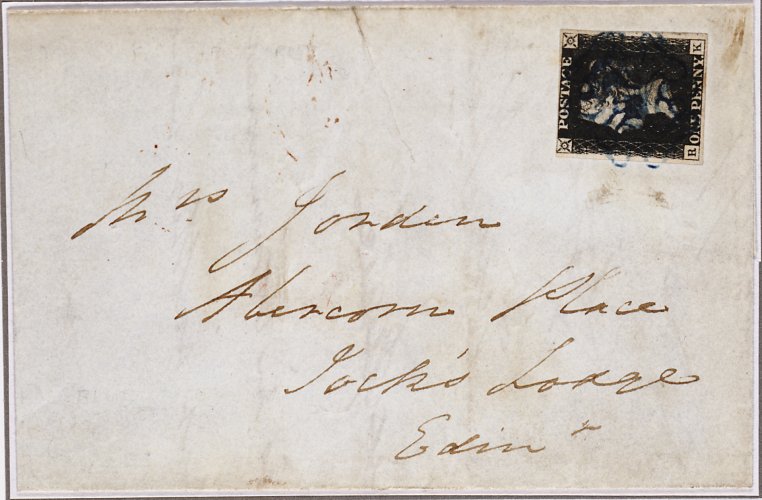 POSTAGE
ONE PENNY
R K
Mrs Jorden
Abercorn Place
Jock's Lodge
Edinr